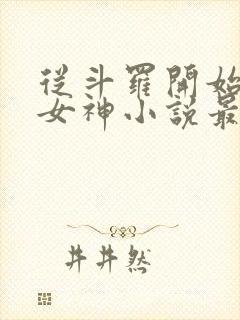 從斗羅開始
女神小說最
井井然